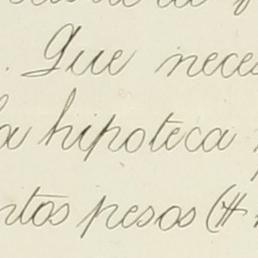 . Que nece
la hipoteca
ntos pesos (#